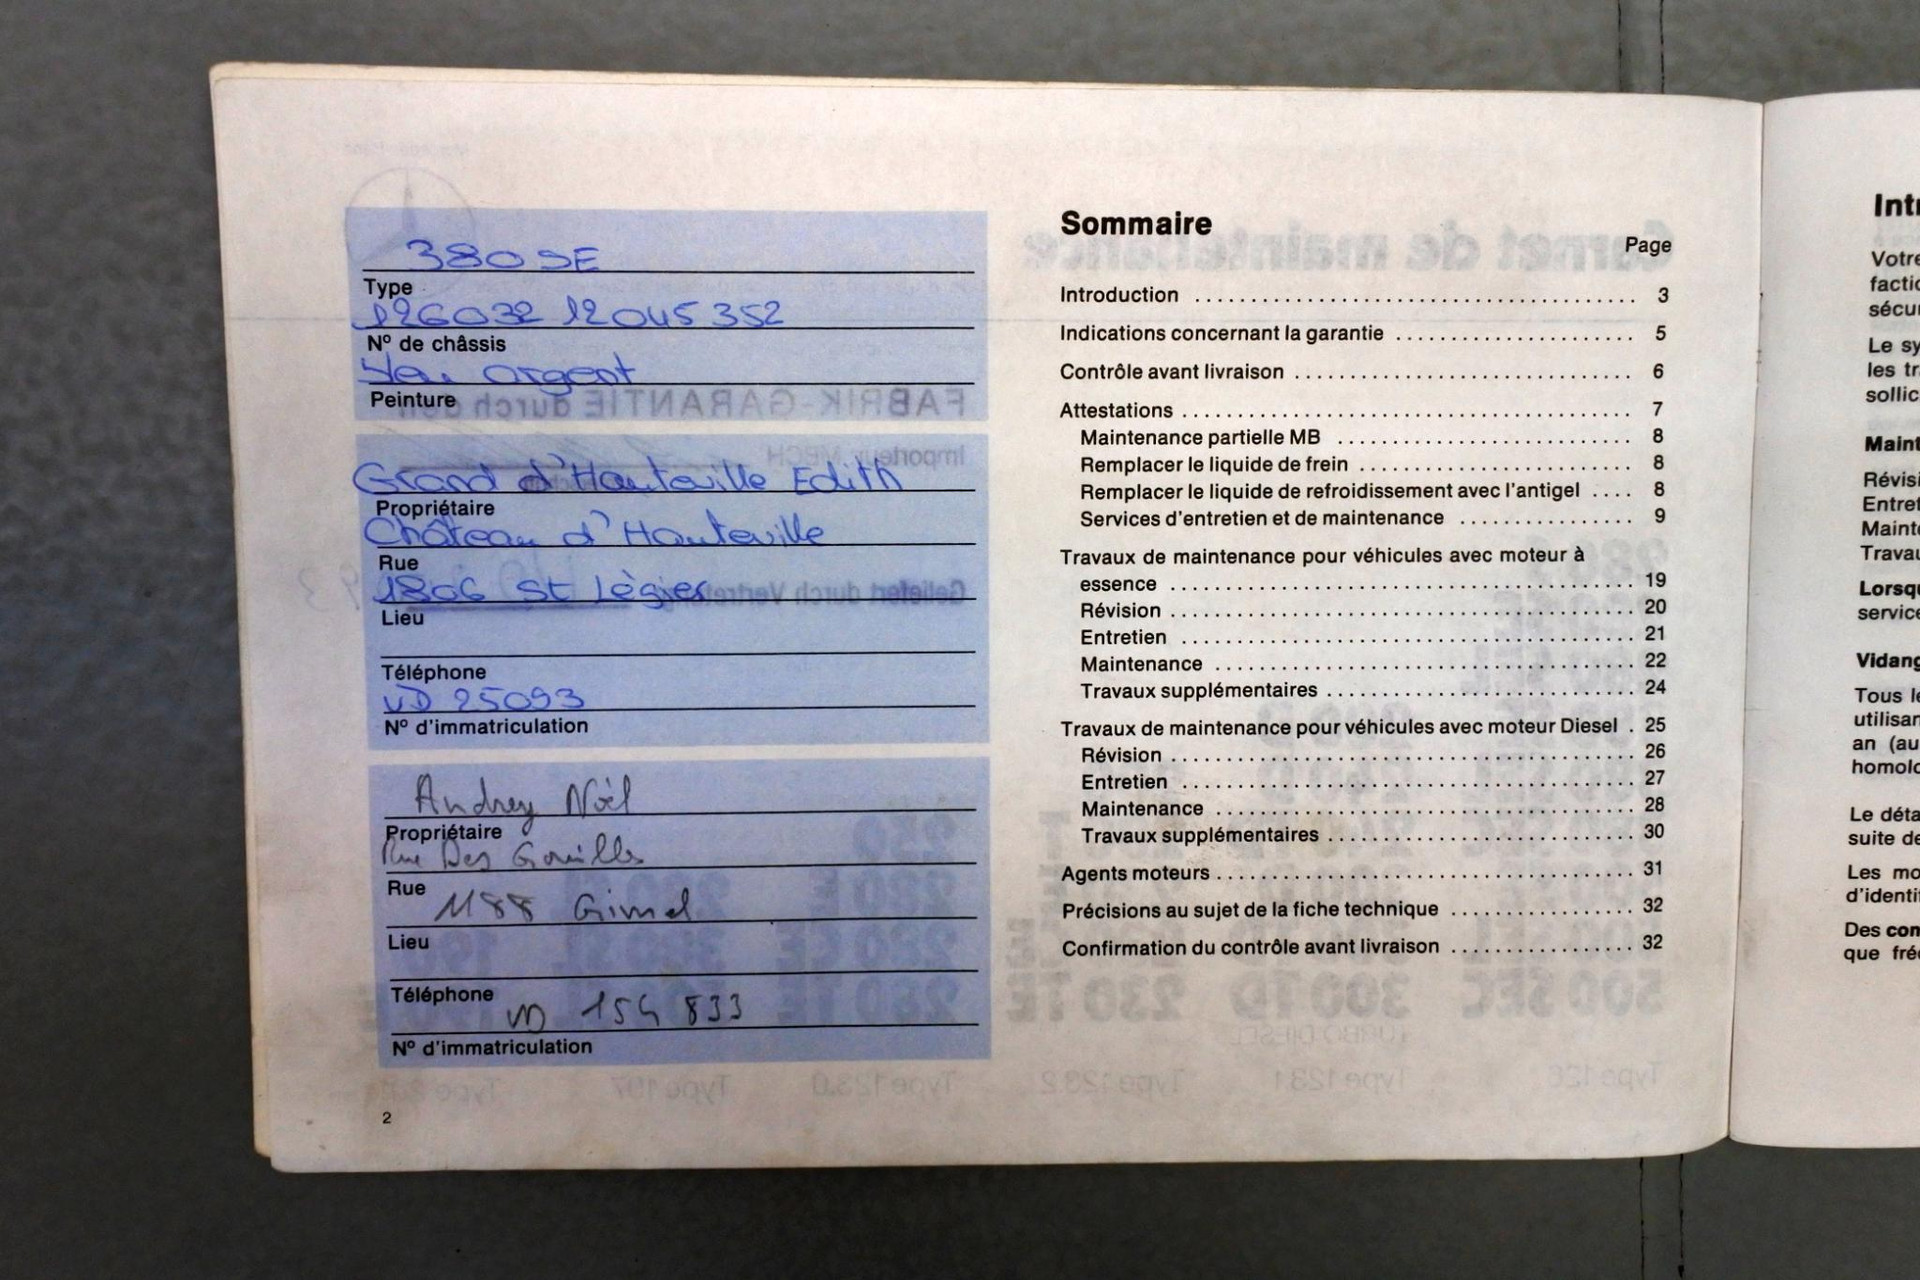 380 SE
Type
126032 12 045 352
Nº de châssis
argent
Peinture
Grand d'Hauteville Edith
Propriétaire
Château d'Hauteville
Rue
1806 St Lègier
Lieu
Téléphone
VD 25093
Nº d'immatriculation
Andrey Noèl
Propriétaire
Rue Des
Rue
1188 Gimel
Lieu
Téléphone
VD 154 833
Nº d'immatriculation
2
Sommaire
Page
Introduction ........................................ 3
Indications concernant la garantie ...................... 5
Contrôle avant livraison ............................... 6
Attestations .......................................... 7
Maintenance partielle MB ............................ 8
Remplacer le liquide de frein .......................... 8
Remplacer le liquide de refroidissement avec l'antigel .... 8
Services d'entretien et de maintenance ................ 9
Travaux de maintenance pour véhicules avec moteur à
essence ............................................. 19
Révision ............................................. 20
Entretien ............................................ 21
Maintenance ........................................ 22
Travaux supplémentaires ............................. 24
Travaux de maintenance pour véhicules avec moteur Diesel . 25
Révision ............................................. 26
Entretien ............................................ 27
Maintenance ........................................ 28
Travaux supplémentaires ............................. 30
Agents moteurs ...................................... 31
Précisions au sujet de la fiche technique ................ 32
Confirmation du contrôle avant livraison ................. 32
Votre
Le sy
les tr
Tous le
an (au
Le déta
suite de
Les mo
Des con
que fré